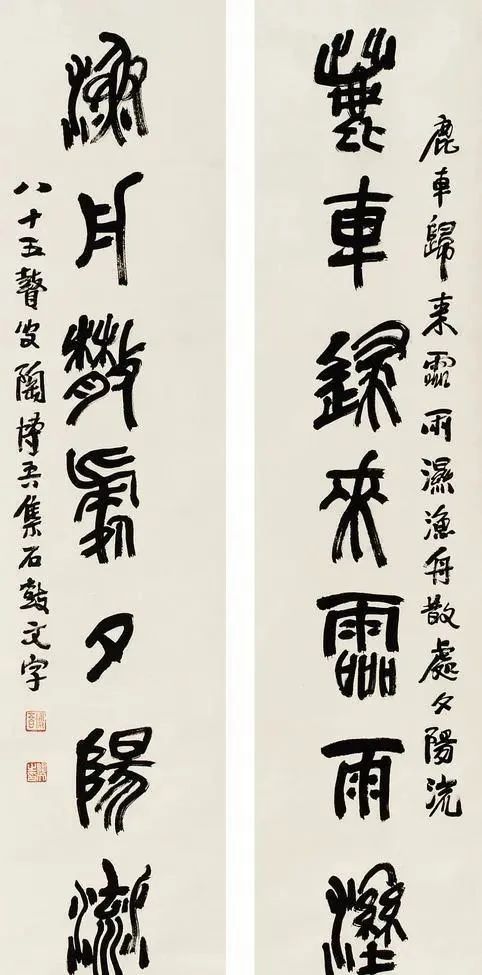 鹿車歸來霝雨濕漁舟散處夕陽流
鹿車歸來霝雨濕
漁舟散處夕陽流
八十五瞽叟陶博吾集石鼓文字